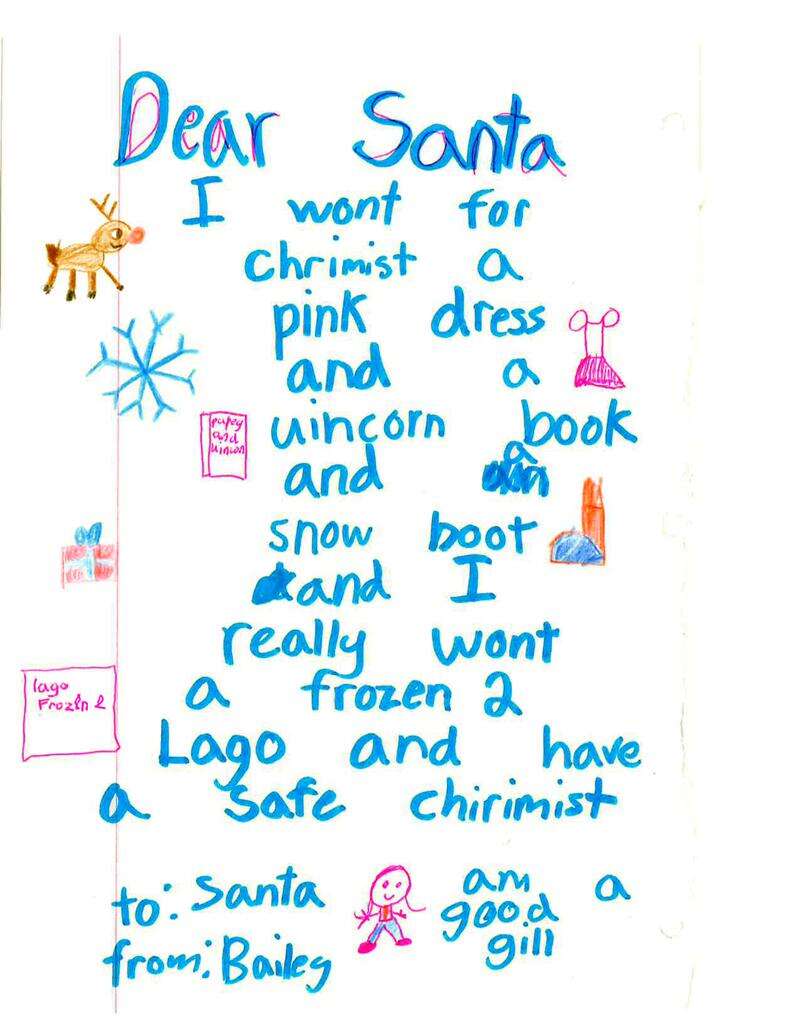 Dear Santa
I wont for
chrimist a
pink dress
and a
uincorn book
and a
snow boot
and I
really wont
a frozen 2
Lago and have
a safe chirimist
to: Santa
from: Bailey
am a
good
gill
and
lago
Frozen 2